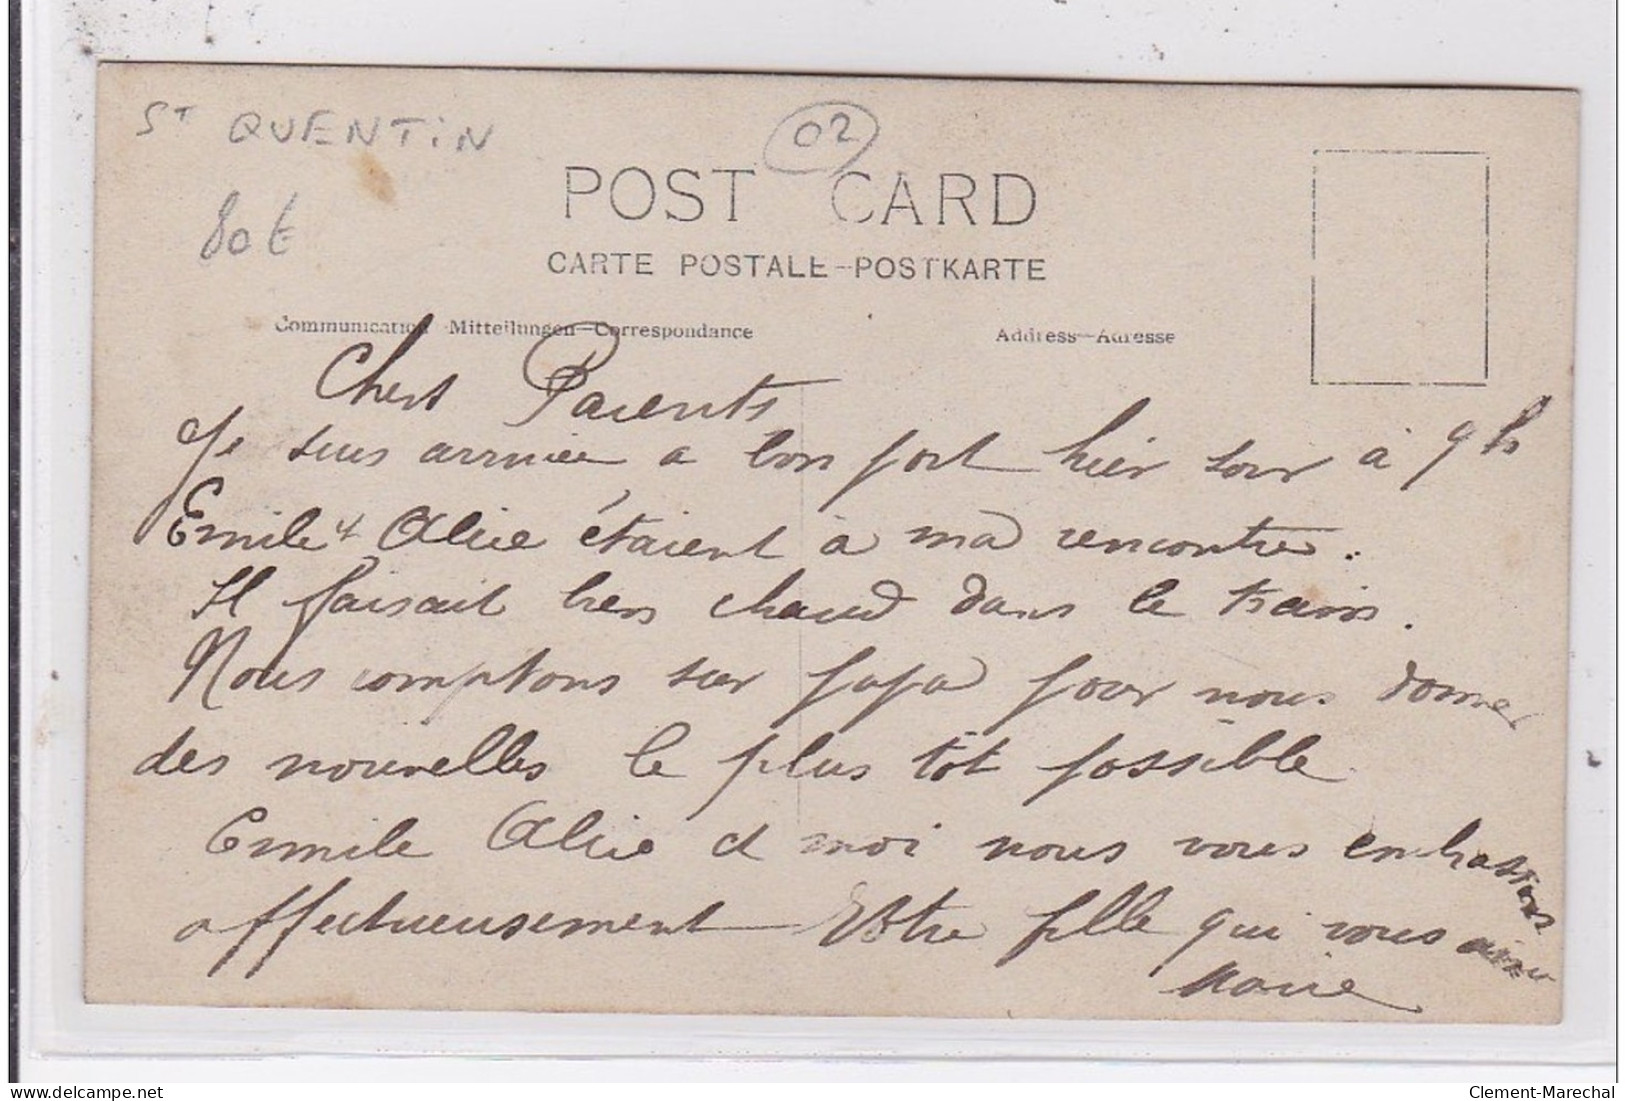 ST QUENTIN
02
80€
POST CARD
CARTE POSTALE–POSTKARTE
Communication Mitteilungen–Correspondance
Address–Adresse
Chers Parents
Je suis arrivée a bon port hier soir à 9h
Emile & Alice étaient à ma rencontre.
Il faisait bien chaud dans le train.
Nous comptons sur papa pour nous donner
des nouvelles le plus tôt possible
Emile Alice et moi nous vous embrassons
affectueusement Votre fille qui vous aime
Marie
delcampe.net
Clement-Marechal